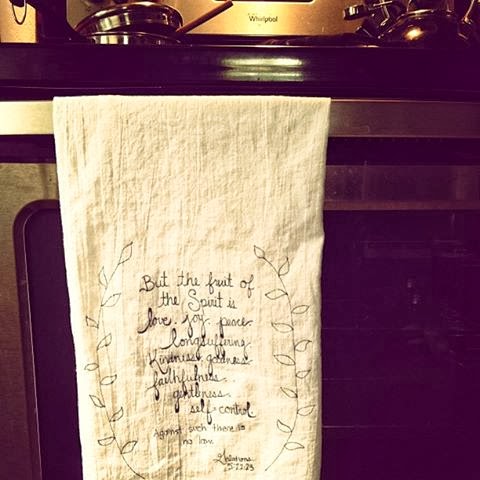 Whirlpool
But the fruit of
the Spirit is
love. joy. peace.
longsuffering.
Kindness. goodness.
faithfulness.
gentleness.
self-control.
Against such there is
no law.
Galatians
5:22.23